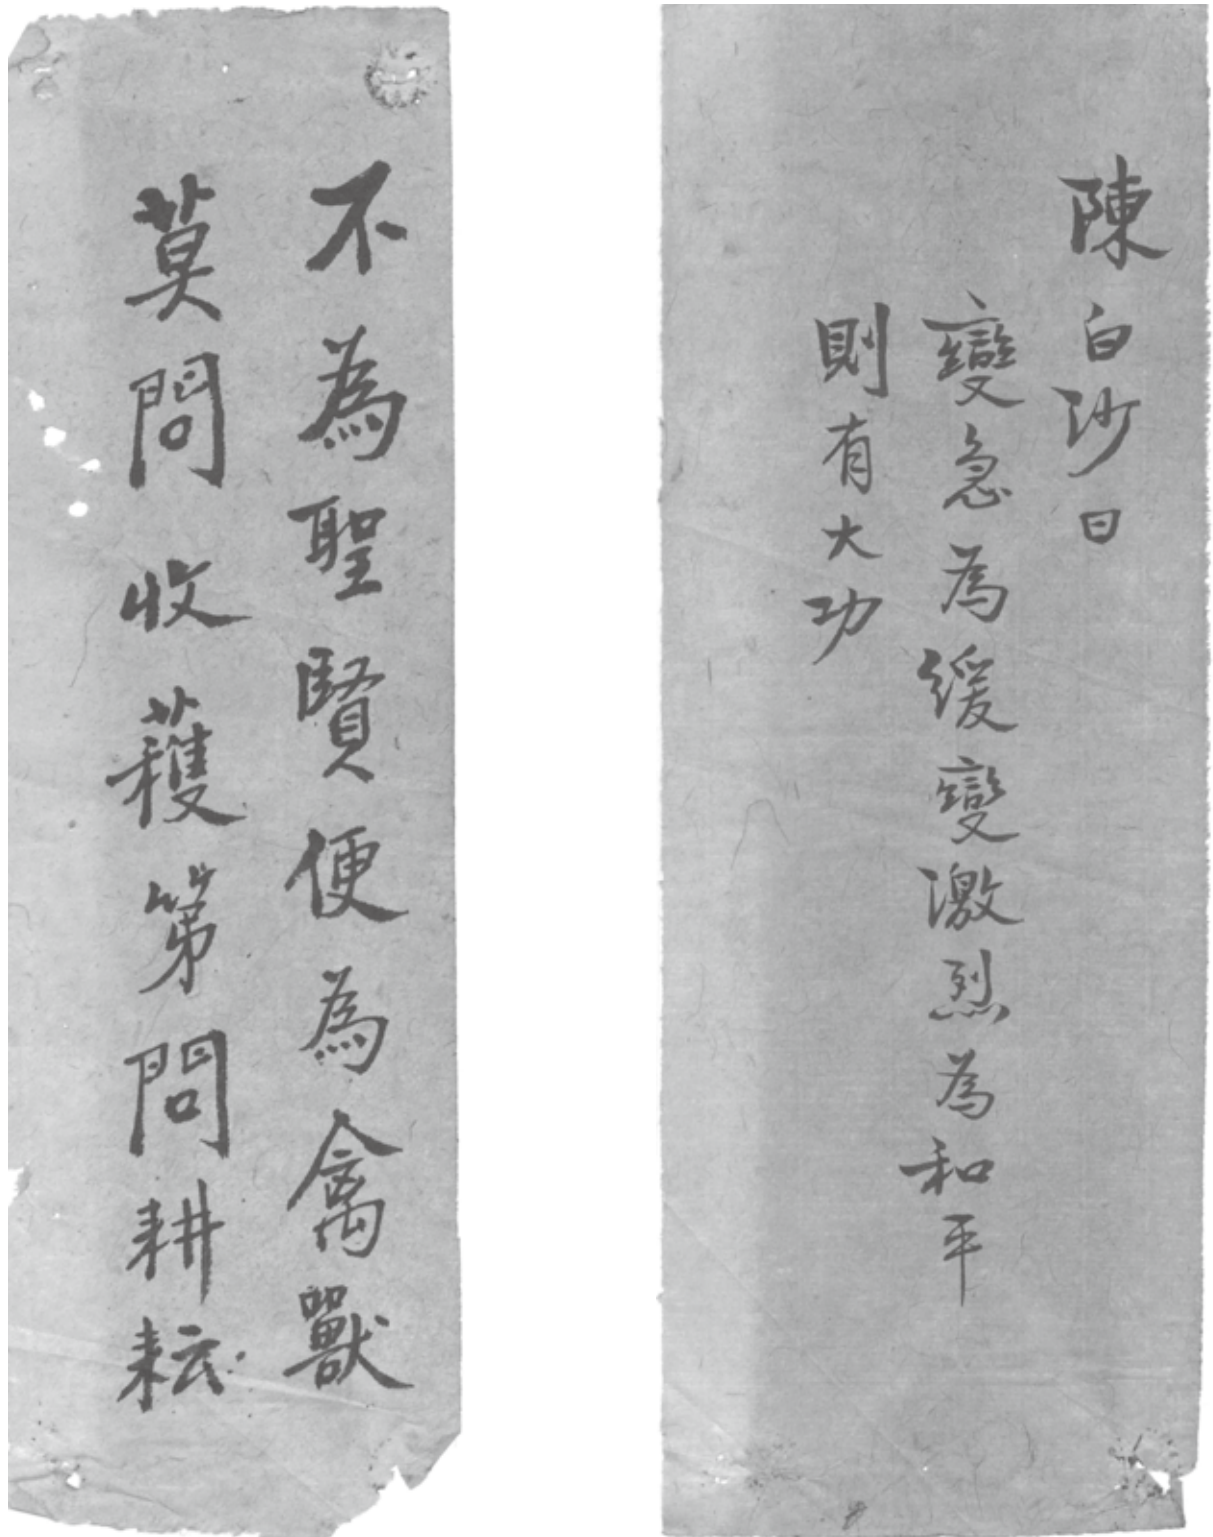 陳白沙曰
變急為緩變激烈為和平
則有大功
不為聖賢便為禽獸
莫問收穫第問耕耘